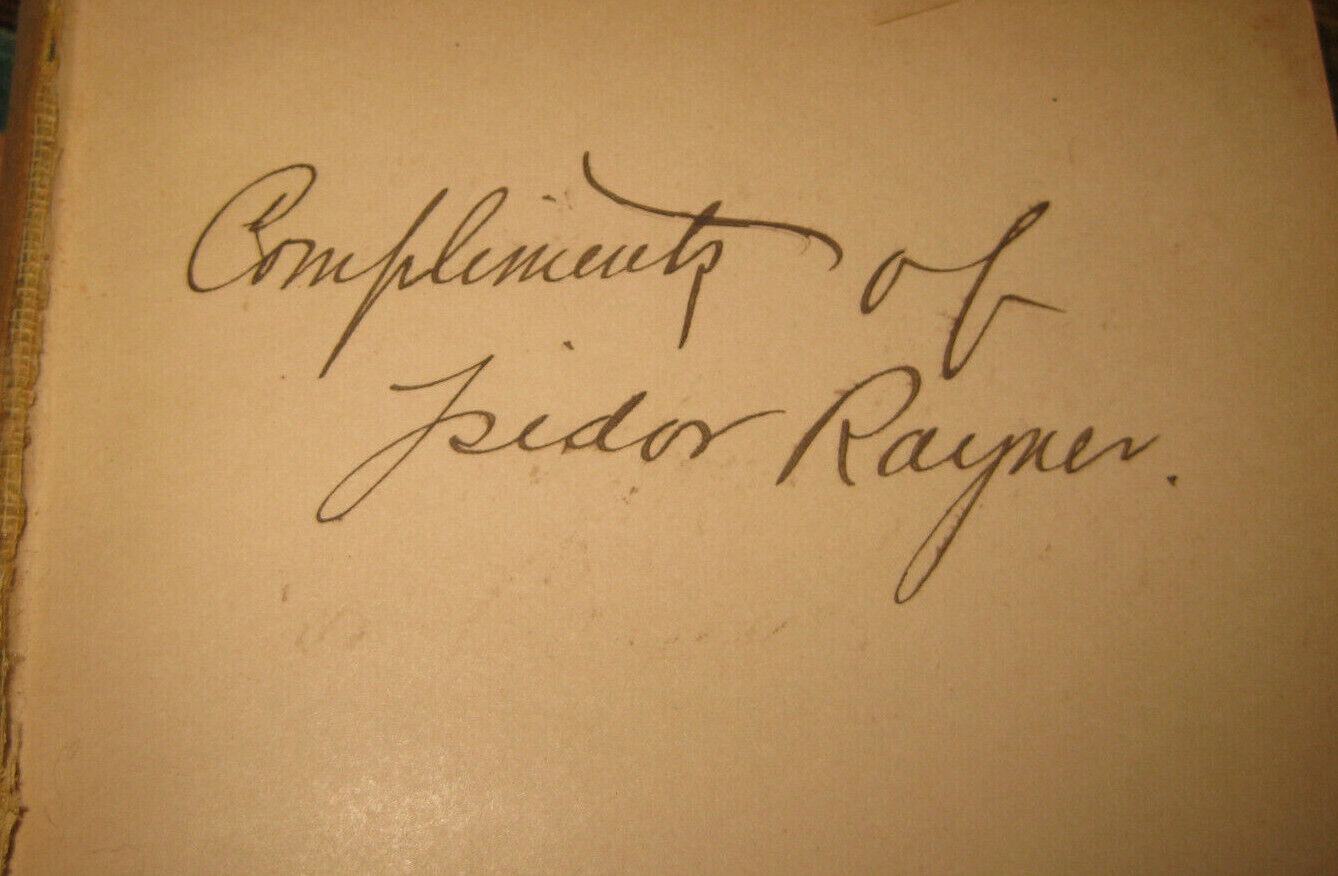 Compliments of
Isidor Rayner.